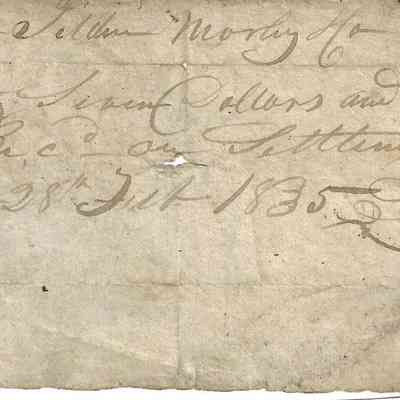 Morley &Co
Seven Dollars and
on Settlem
28th Feb 1835